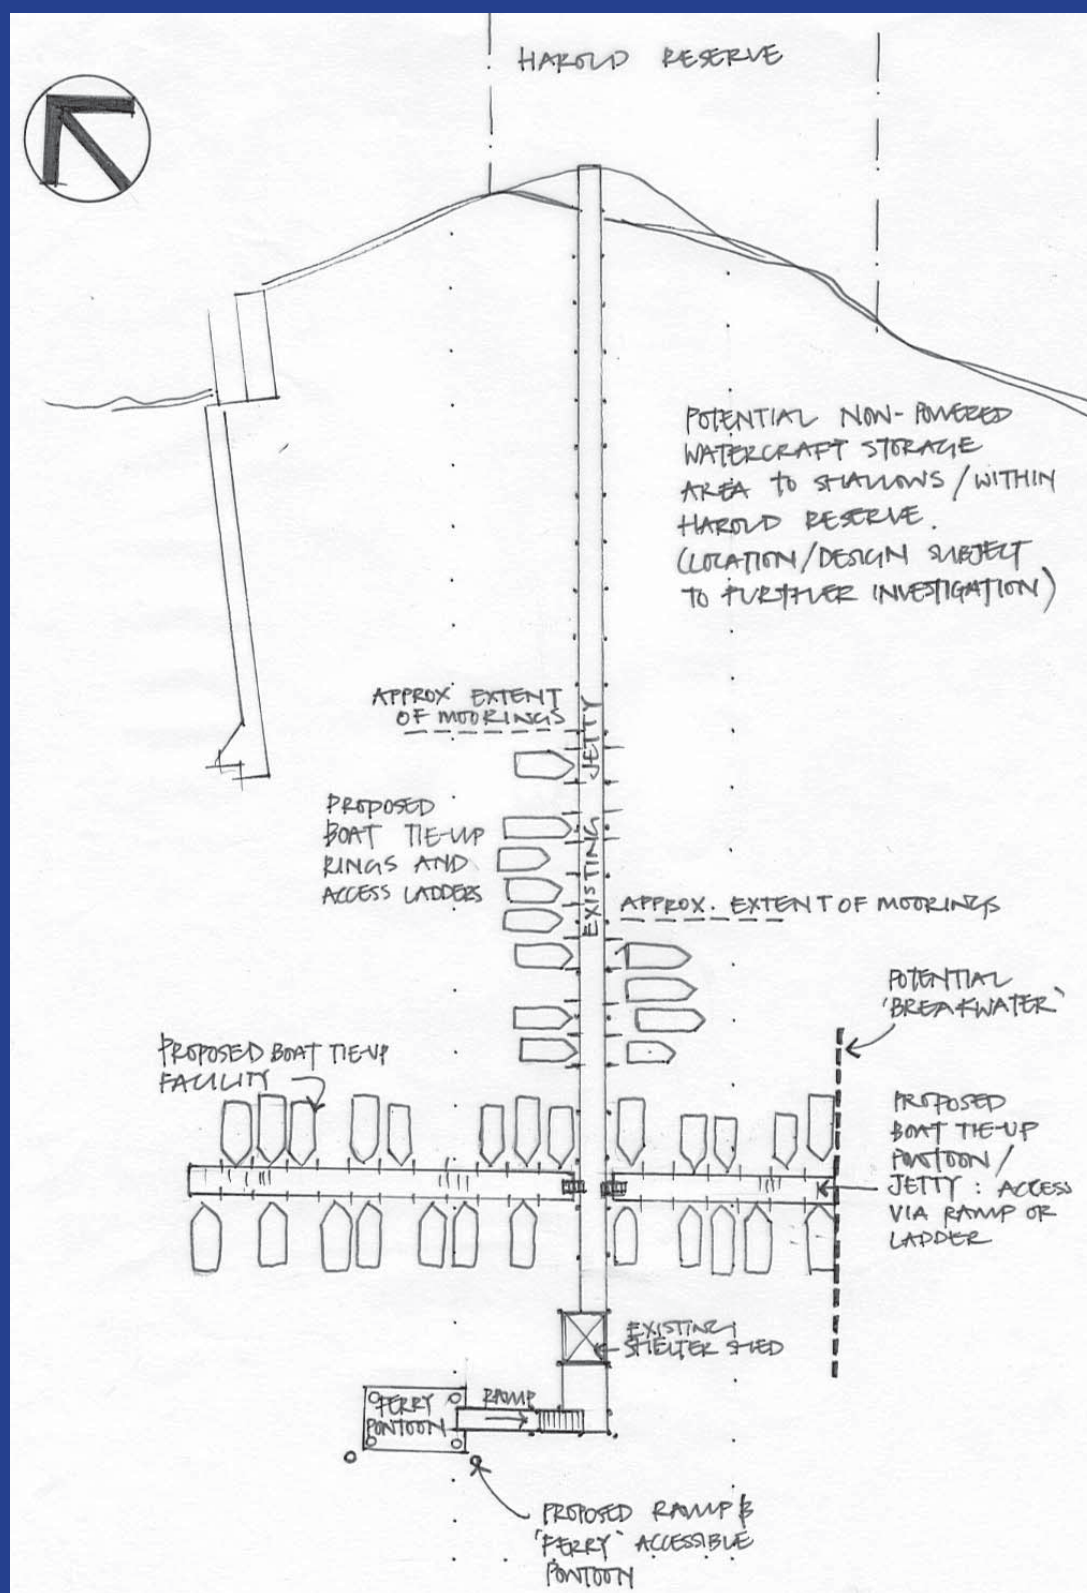 HAROLD RESERVE
POTENTIAL NON-POWERED
WATERCRAFT STORAGE
AREA TO SHALLOWS / WITHIN
HAROLD RESERVE.
(LOCATION/DESIGN SUBJECT
TO FURTHER INVESTIGATION)
APPROX EXTENT
OF MOORINGS
EXISTING JETTY
PROPOSED
BOAT TIE-UP
RINGS AND
ACCESS LADDERS
APPROX. EXTENT OF MOORINGS
POTENTIAL
'BREAKWATER'
PROPOSED BOAT TIE-UP
FACILITY
PROPOSED
BOAT TIE-UP
PONTOON /
JETTY : ACCESS
VIA RAMP OR
LADDER
EXISTING
SHELTER SHED
FERRY
PONTOON
RAMP
PROPOSED RAMP &
'FERRY' ACCESSIBLE
PONTOON